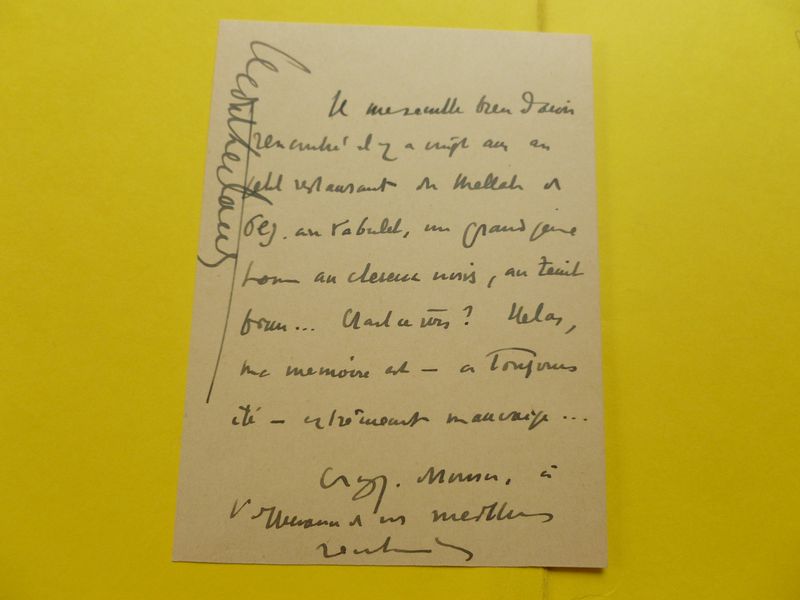 Il me semble bien d'avoir
rencontré il y a vingt ans au
petit restaurant du Mellah de
Fez, un grand jeune
homme aux cheveux noirs, au teint
brun... Etait-ce vous? Helas,
ma memoire est — a toujours
été — extrêmement mauvaise...
Croyez, Monsieur, à
l'assurance de mes meilleurs
sentiments